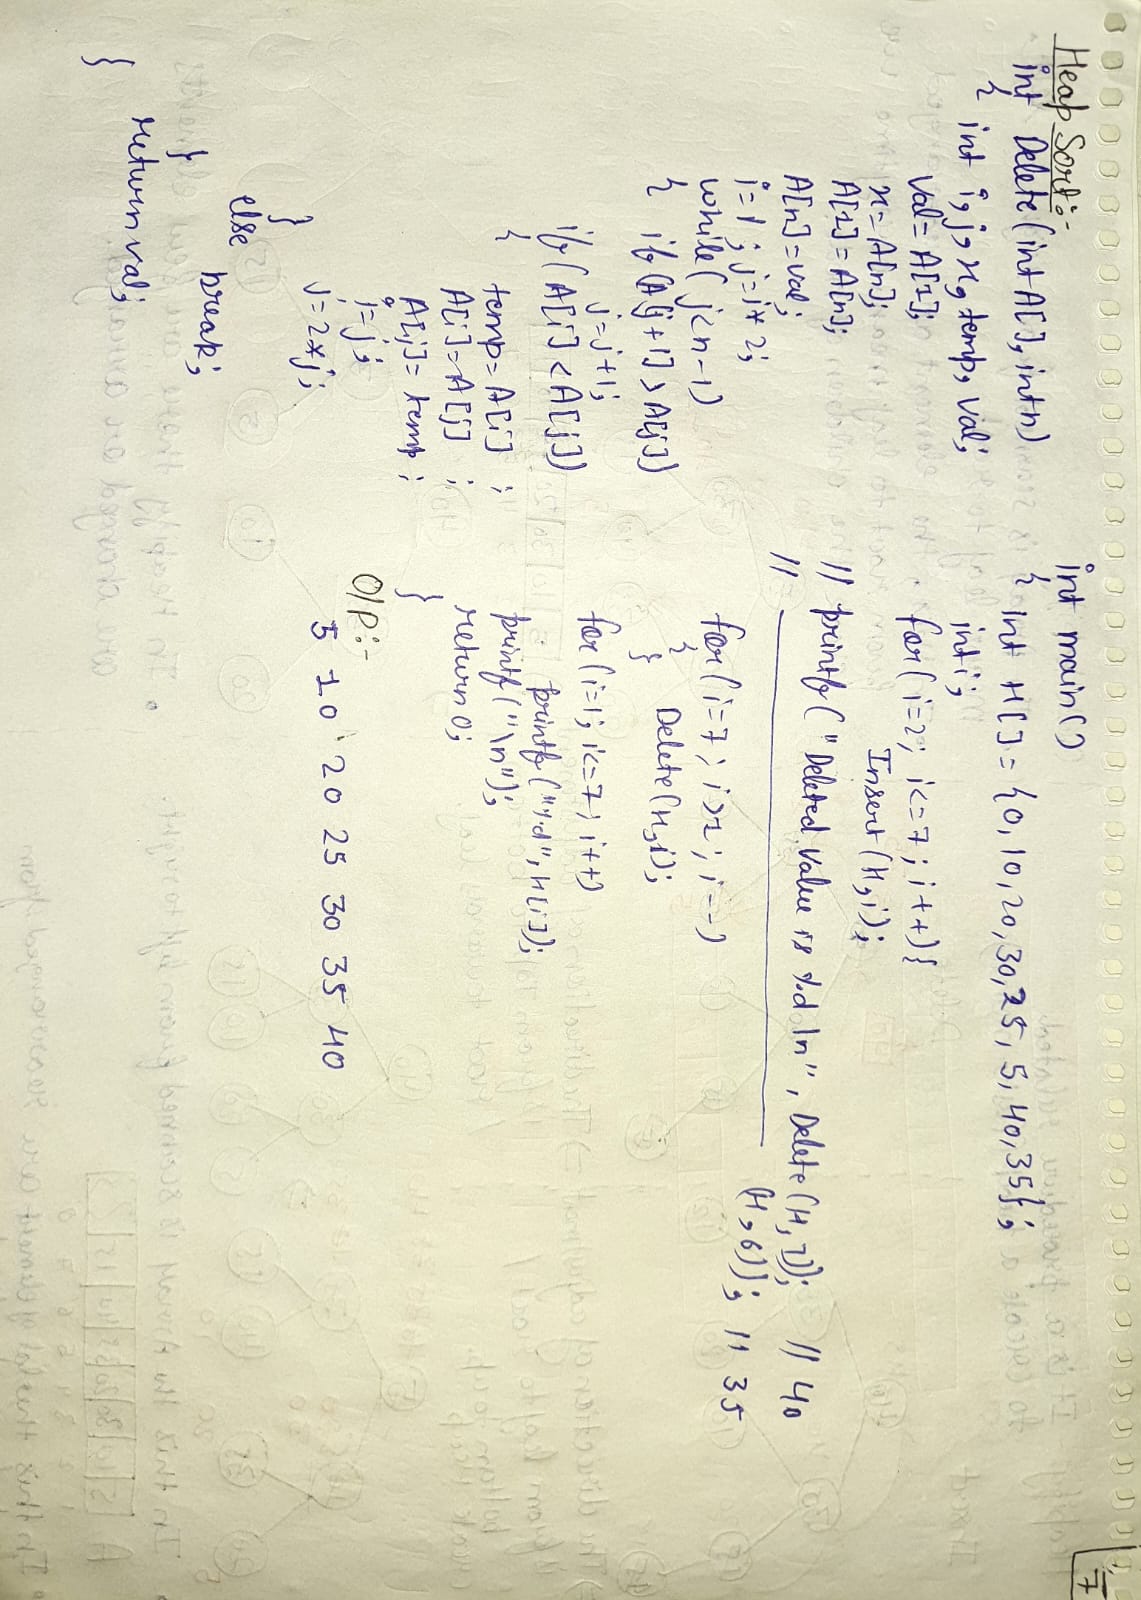 7
Heap Sort:-
int Delete (int A[], int n)
{
int i, j, x, temp, val;
val = A[1];
x = A[n];
A[1] = A[n];
A[n] = val;
i=1; j=i*2;
while( j<n-1)
{ if (A[j+1] > A[j])
j=j+1;
if (A[i] < A[j])
{
temp = A[i] ;
A[i] = A[j] ;
A[j] = temp ;
i=j;
j=2*j;
}
else
break;
}
return val;
}
int main()
{
int H[] = {0, 10, 20, 30, 25, 5, 40, 35};
int i;
for( i=2; i<=7; i++){
Insert (H, i);
// printf ("Deleted Value is %d \n", Delete (H, 7)); // 40
// (H, 6)); // 35
for( i=7; i>1; i--)
{
Delete (H, i);
}
for (i=1; i<=7; i++)
printf ("%d", H[i]);
printf ("\n");
return 0;
}
O/P:-
5 10 20 25 30 35 40